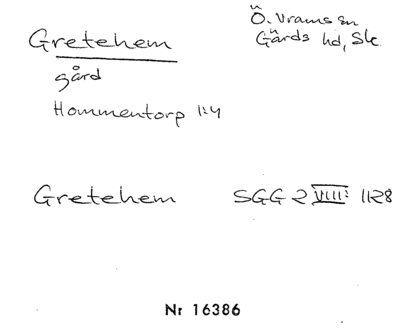 Gretehem
Ö. Vrams sn
Gärds hd, Sk
gård
Hommentorp 1:4
Gretehem SGG 2 VIII: 1128
Nr 16386